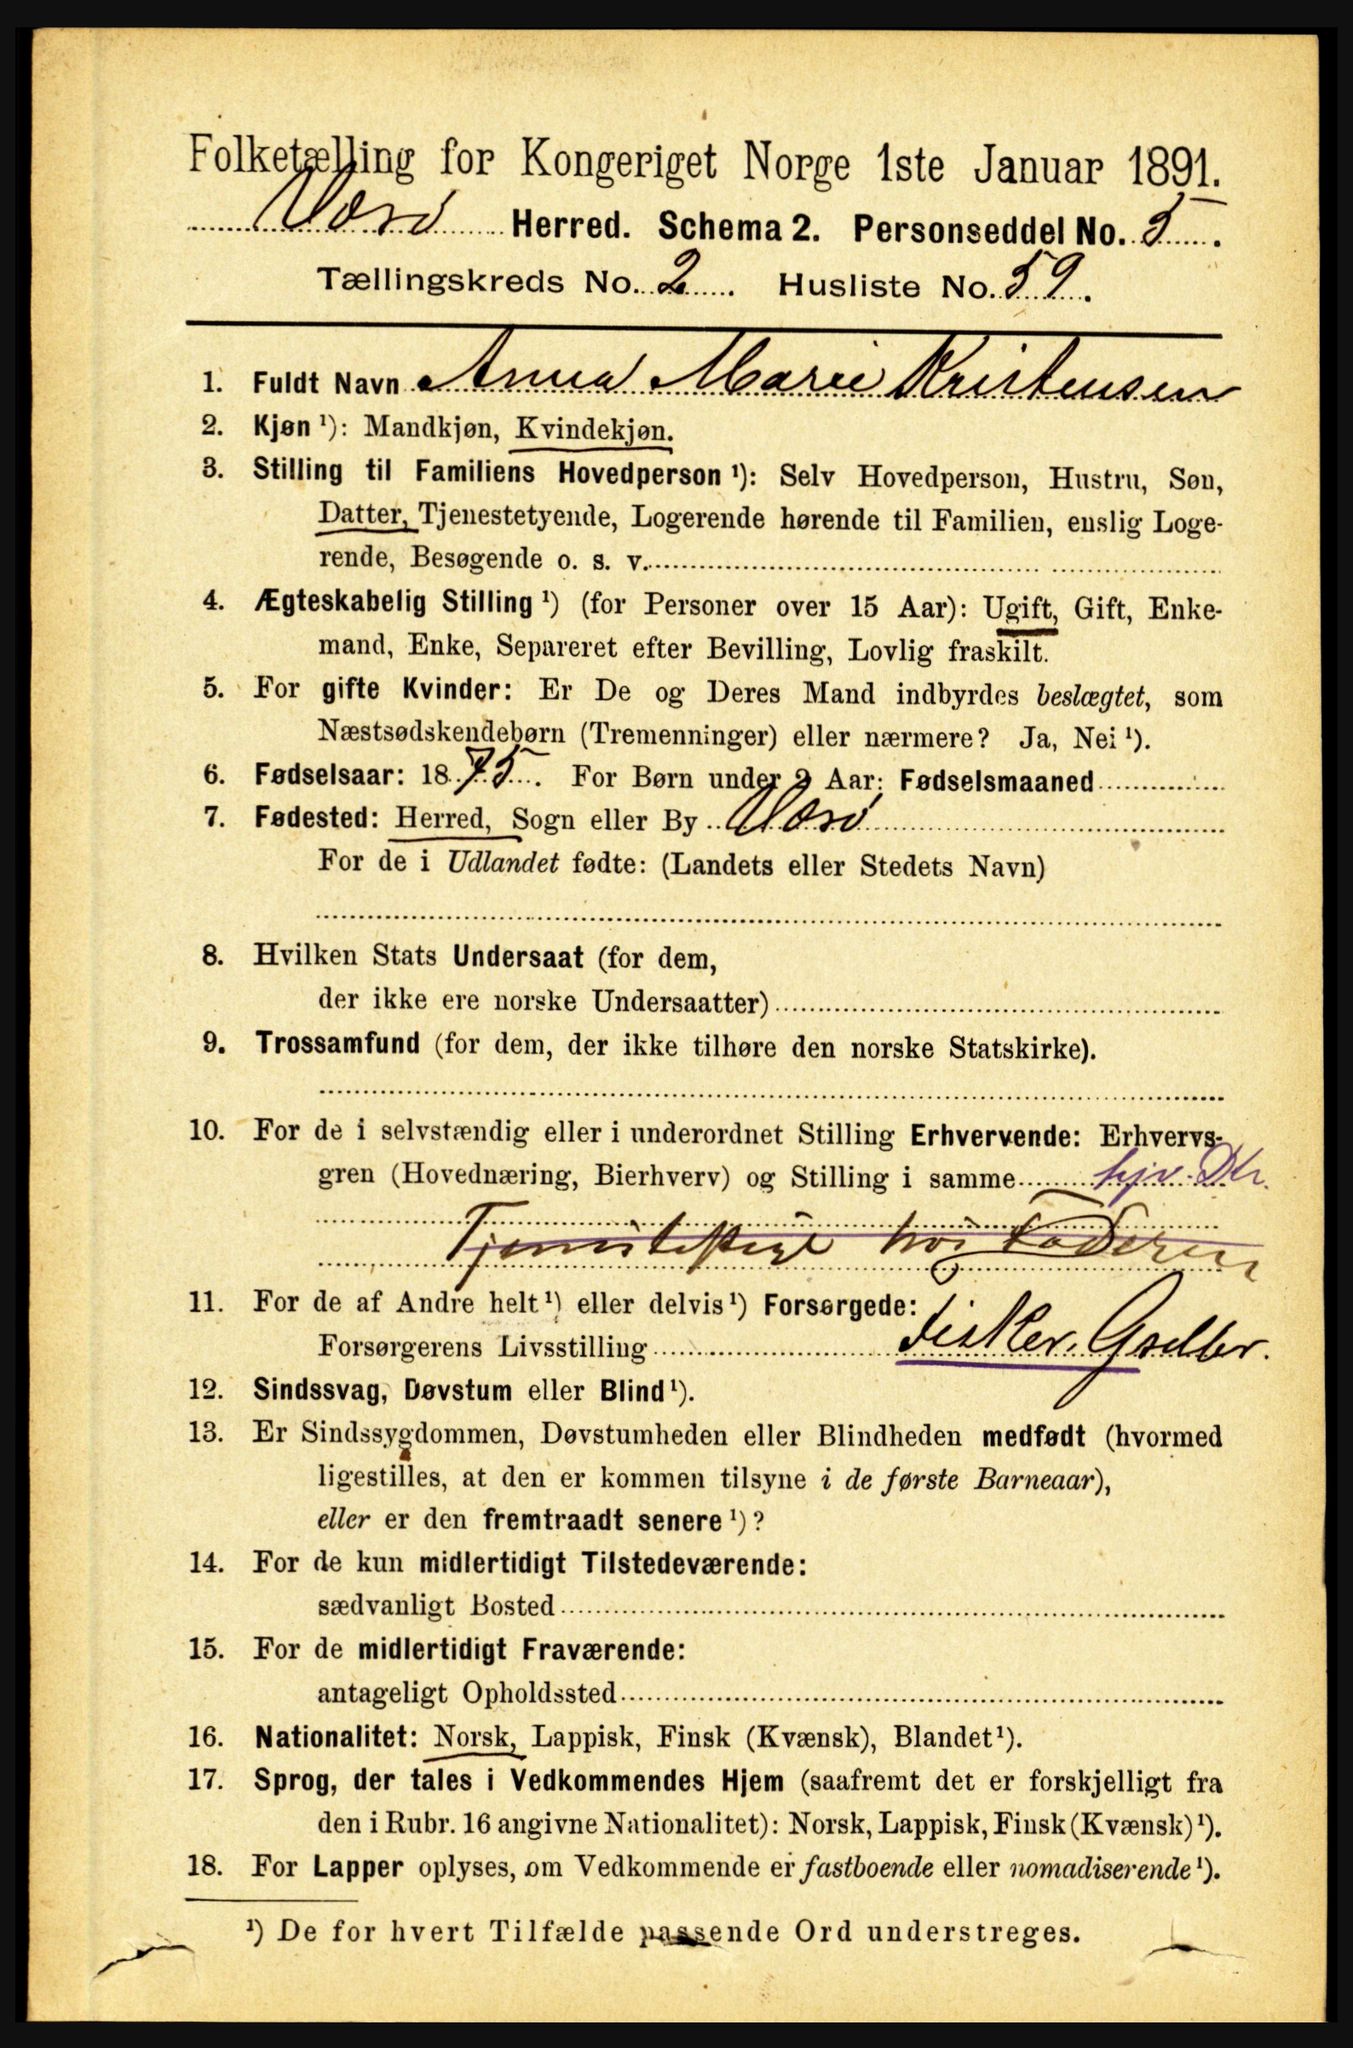 Folketælling for Kongeriget Norge 1ste Januar 1891.
Værø Herred. Schema 2. Personseddel No. 5.
Tællingskreds No. 2. Husliste No. 59.
1. Fuldt Navn Anna Marie Kristensen
2. Kjøn ¹): Mandkjøn, Kvindekjøn.
3. Stilling til Familiens Hovedperson ¹): Selv Hovedperson, Hustru, Søn,
Datter, Tjenestetyende, Logerende hørende til Familien, enslig Loge-
rende, Besøgende o. s. v.
4. Ægteskabelig Stilling ¹) (for Personer over 15 Aar): Ugift, Gift, Enke-
mand, Enke, Separeret efter Bevilling, Lovlig fraskilt.
5. For gifte Kvinder: Er De og Deres Mand indbyrdes beslægtet, som
Næstsødskendebørn (Tremenninger) eller nærmere? Ja, Nei ¹).
6. Fødselsaar: 1875. For Børn under 2 Aar: Fødselsmaaned
7. Fødested: Herred, Sogn eller By Værø
For de i Udlandet fødte: (Landets eller Stedets Navn)
8. Hvilken Stats Undersaat (for dem,
der ikke ere norske Undersaatter)
9. Trossamfund (for dem, der ikke tilhøre den norske Statskirke).
10. For de i selvstændig eller i underordnet Stilling Erhvervende: Erhvervs-
gren (Hovednæring, Bierhverv) og Stilling i samme hjv. Dtr.
Tjenestepige hos Faderen
11. For de af Andre helt ¹) eller delvis ¹) Forsørgede:
Forsørgerens Livsstilling Fisker. Gaardbr.
12. Sindssvag, Døvstum eller Blind ¹).
13. Er Sindssygdommen, Døvstumheden eller Blindheden medfødt (hvormed
ligestilles, at den er kommen tilsyne i de første Barneaar),
eller er den fremtraadt senere ¹)?
14. For de kun midlertidigt Tilstedeværende:
sædvanligt Bosted
15. For de midlertidigt Fraværende:
antageligt Opholdssted
16. Nationalitet: Norsk, Lappisk, Finsk (Kvænsk), Blandet ¹).
17. Sprog, der tales i Vedkommendes Hjem (saafremt det er forskjelligt fra
den i Rubr. 16 angivne Nationalitet): Norsk, Lappisk, Finsk (Kvænsk) ¹).
18. For Lapper oplyses, om Vedkommende er fastboende eller nomadiserende ¹).
¹) De for hvert Tilfælde passende Ord understreges.